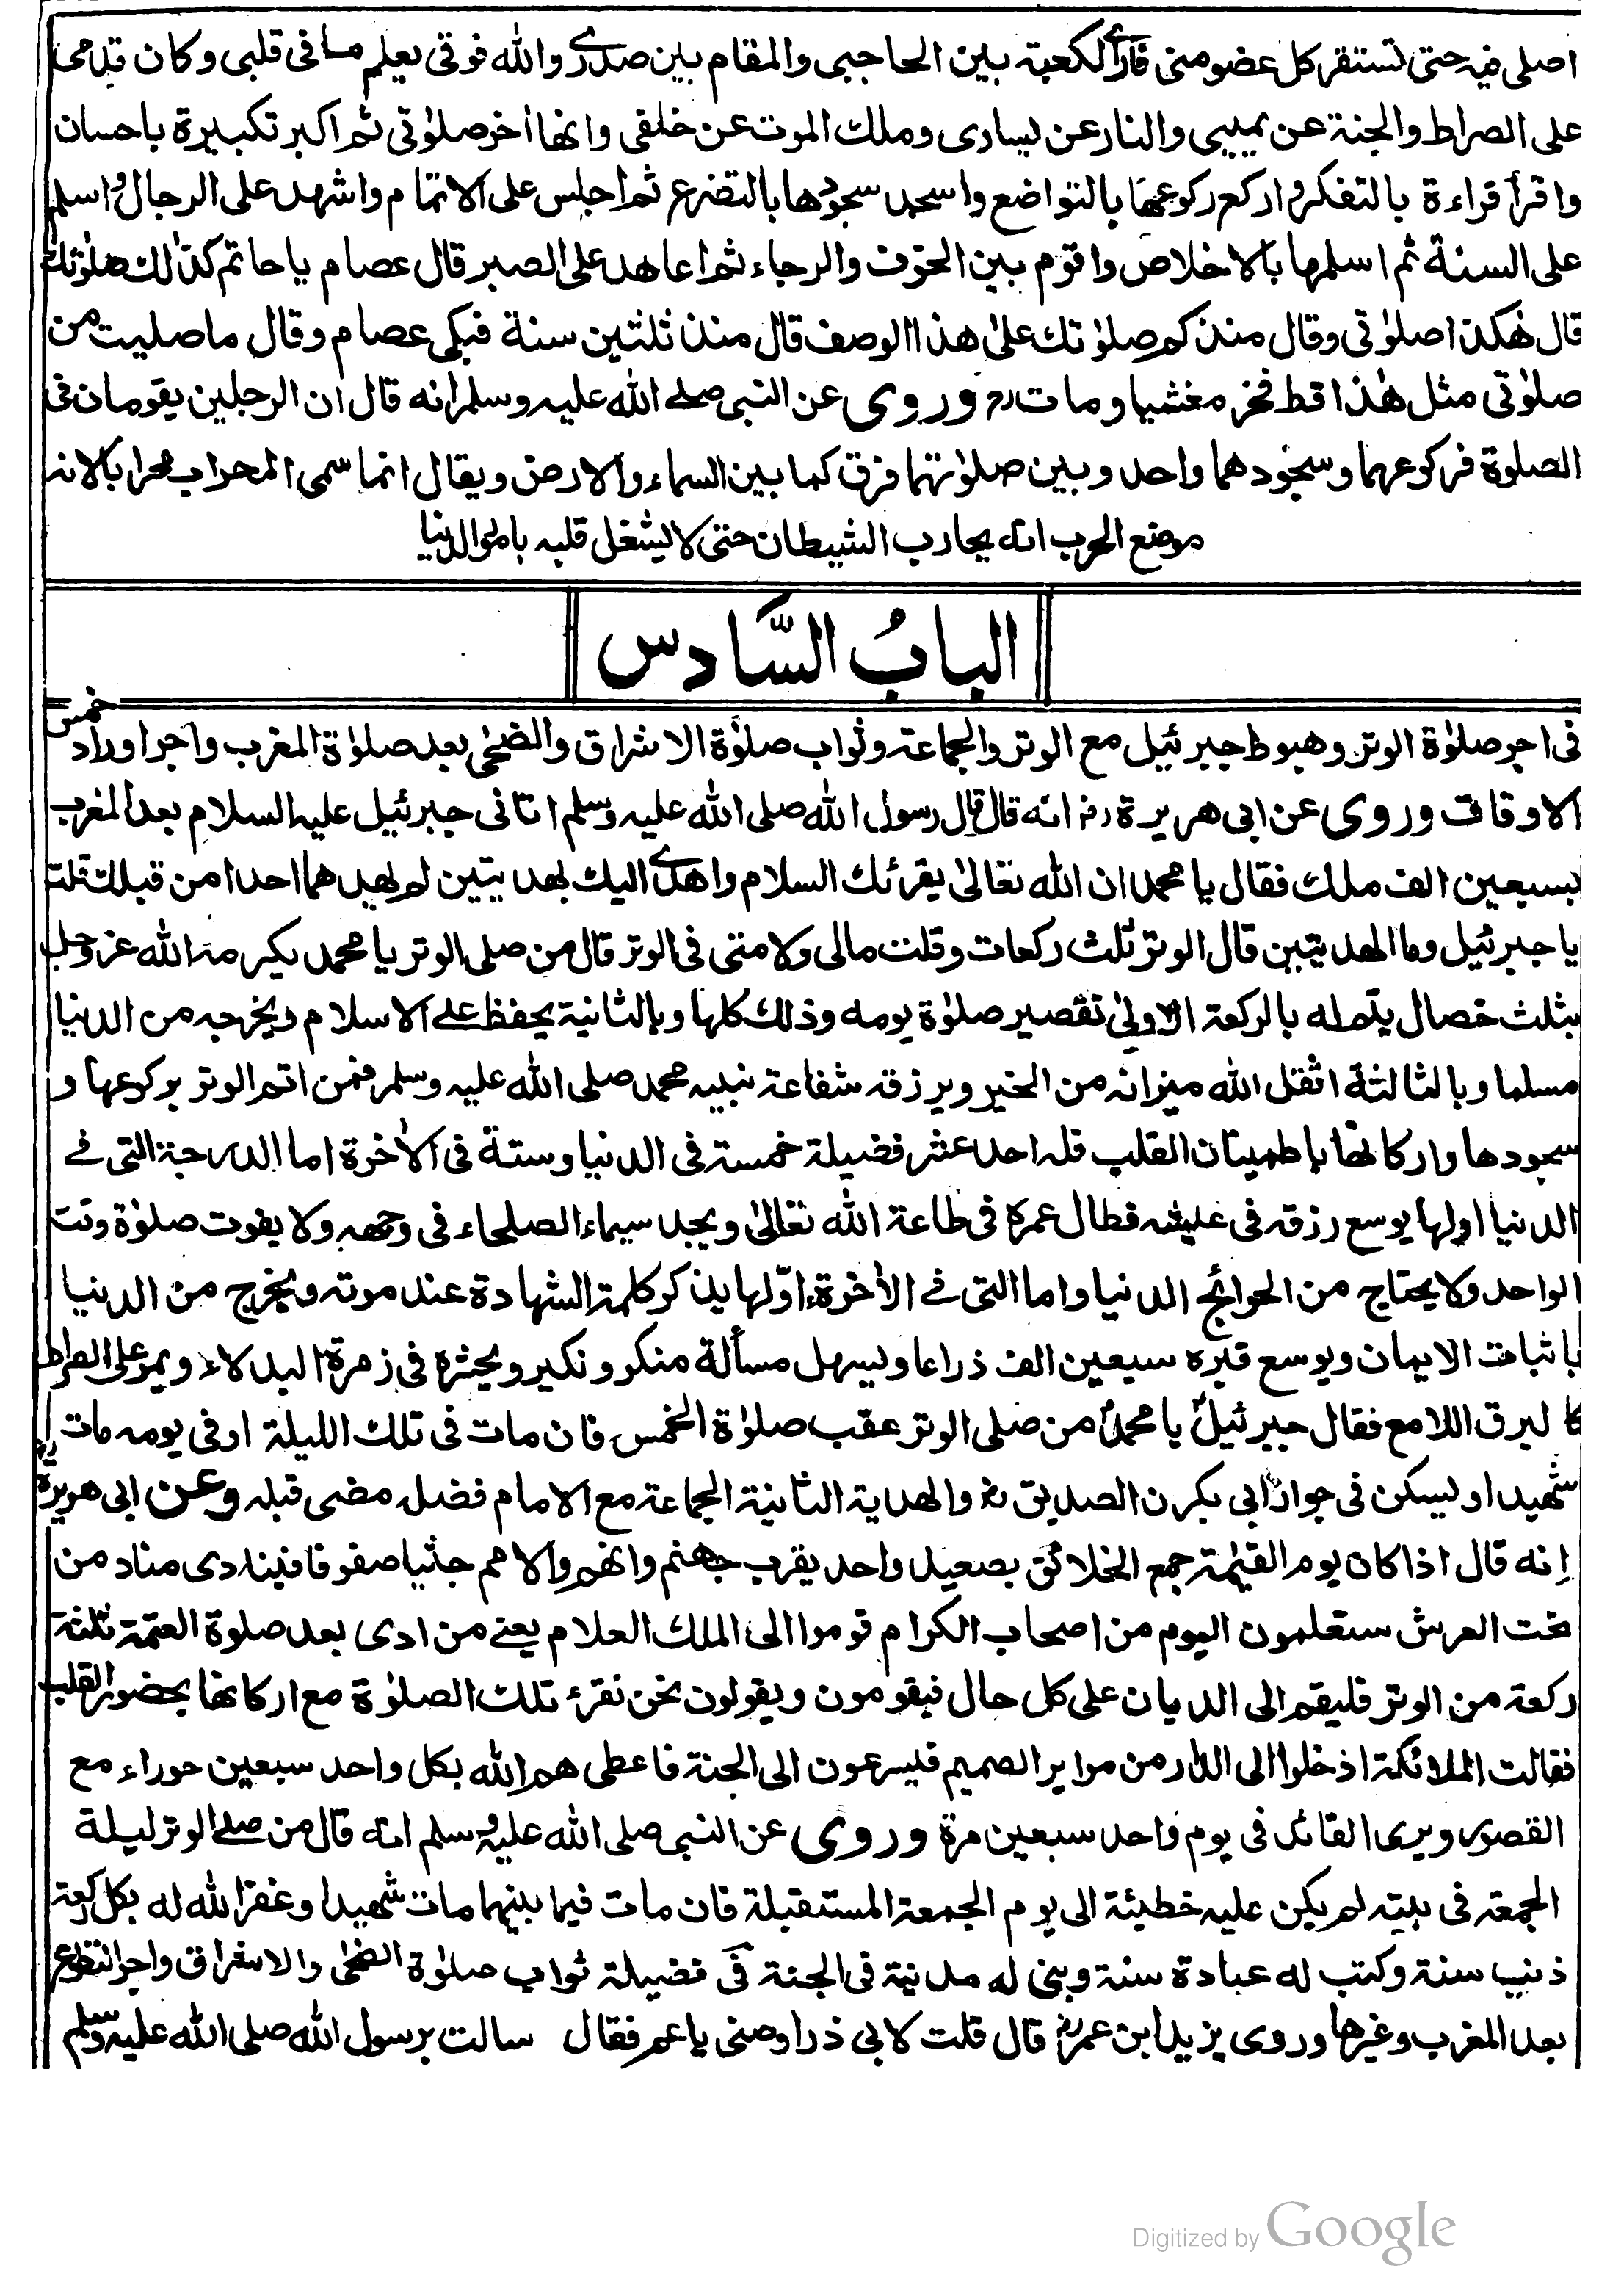 اصلی فیه حتی تستقر كل عضو منی فاری الكعبة بین الحاجبی والمقام بین صدری والله فوقی یعلم مافی قلبی وكان قدمی
علی الصراط والجنة عن یمینی والنار عن یساری وملك الموت عن خلفی وانها اخر صلوٰتی ثم اكبر تكبیرة باحسان
واقرأ قراءة بالتفكر واركع ركوعها بالتواضع واسجد سجودها بالتضرع ثم اجلس علی الاتمام واشهد علی الرجال واسلم
علی السنة ثم اسلمها بالاخلاص واقوم بین الخوف والرجاء ثم اعاهد علی الصبر قال عصام یا حاتم كذالك صلوٰتك
قال هٰكذا صلوٰتی وقال منذ كم صلوٰتك علیٰ هذا الوصف قال منذ ثلثین سنة فبكی عصام وقال ماصلیت من
صلوٰتی مثل هٰذا قط فخر مغشیا ومات رح وروی عن النبی صلے الله علیه وسلم انه قال ان الرجلین یقومان فی
الصلوة فركوعهما وسجودهما واحد وبین صلوٰتهما فرق كما بین السماء والارض ویقال انما سمی المحراب محرابا لانه
موضع الحرب انه یحارب الشیطان حتی لا یشغل قلبه بامور الدنیا
البابُ السَّادس
فی اجر صلوٰة الوتر وهبوط جبرئیل مع الوتر والجماعة وثواب صلوٰة الاشراق والضحیٰ بعد صلوٰة المغرب واجر اوراد خمس
الاوقات وروی عن ابی هریرة رض انه قال قال رسول الله صلی الله علیه وسلم اتانی جبرئیل علیه السلام بعد المغرب
بسبعین الف ملك فقال یا محمد ان الله تعالیٰ یقرئك السلام واهدی الیك بهدیتین لم یهدهما احدا من قبلك قلت
یا جبرئیل وما الهدیتین قال الوتر ثلث ركعات وقلت مالی ولامتی فی الوتر قال من صلی الوتر یا محمد یكرمه الله عز وجل
بثلث خصال یتم له بالركعة الاولیٰ تقصیر صلوٰة یومه وذلك كلها وبالثانیة یحفظ علے الاسلام ویخرجه من الدنیا
مسلما وبالثالثة اثقل الله میزانه من الخیر ویرزقه شفاعة نبیه محمد صلی الله علیه وسلم فمن اتم الوتر بركوعها و
سجودها واركانها باطمینان القلب فله احد عشر فضیلة خمسة فی الدنیا وستة فی الاٰخرة اما الدرجة التی فے
الدنیا اولها یوسع رزقه فی عیشه فطال عمره فی طاعة الله تعالیٰ ویجد سیماء الصلحاء فی وجهه ولا یفوت صلوٰة وقت
الواحد ولا یحتاج من الحوائج الدنیا واما التی فے الاٰخرة اوّلها یذكر كلمة الشهادة عند موته ویخرج من الدنیا
باثبات الایمان ویوسع قبره سبعین الف ذراعا ویسهل مسألة منكر ونكیر ویحشره فی زمرة البدلاء ویمر علی الصراط
كالبرق اللامع فقال جبرئیل یا محمد من صلی الوتر عقب صلوٰة الخمس فان مات فی تلك اللیلة او فی یومه مات
شهیدا ویسكن فی جوار ابی بكر ن الصدیق رض والهدیة الثانیة الجماعة مع الامام فضله مضی قبله وعن ابی هریرة رض
انه قال اذا كان یوم القیٰمة جمع الخلائق بصعید واحد یقرب جهنم وانهم والامم جثیا صفوفا فینادی مناد من
تحت العرش ستعلمون الیوم من اصحاب الكرام قوموا الی الملك العلام یعنے من ادی بعد صلوة العتمة ثلثة
ركعة من الوتر فلیقم الی الدیان علی كل حال فیقومون ویقولون نحن نقرء تلك الصلوٰة مع اركانها بحضور القلب
فقالت الملائكة اذخلوا الی الدار من موایر الصمیم فیسرعون الی الجنة فاعطی هم الله بكل واحد سبعین حوراء مع
القصور ویری القائل فی یوم واحد سبعین مرة وروی عن النبی صلی الله علیه وسلم انه قال من صلے الوتر لیلة
الجمعة فی بیته لم یكن علیه خطیئة الی یوم الجمعة المستقبلة فان مات فیما بینهما مات شهیدا وغفر الله له بكل ركعة
ذنب سنة وكتب له عبادة سنة وبنی له مدینة فی الجنة فی فضیلة ثواب صلوٰة الضحیٰ والاشراق واجر التطوع
بعد المغرب وغیرها وروی یزید ابن عمر رض قال قلت لابی ذر اوصنی یا عم فقال سالت برسول الله صلی الله علیه وسلم
Digitized by Google